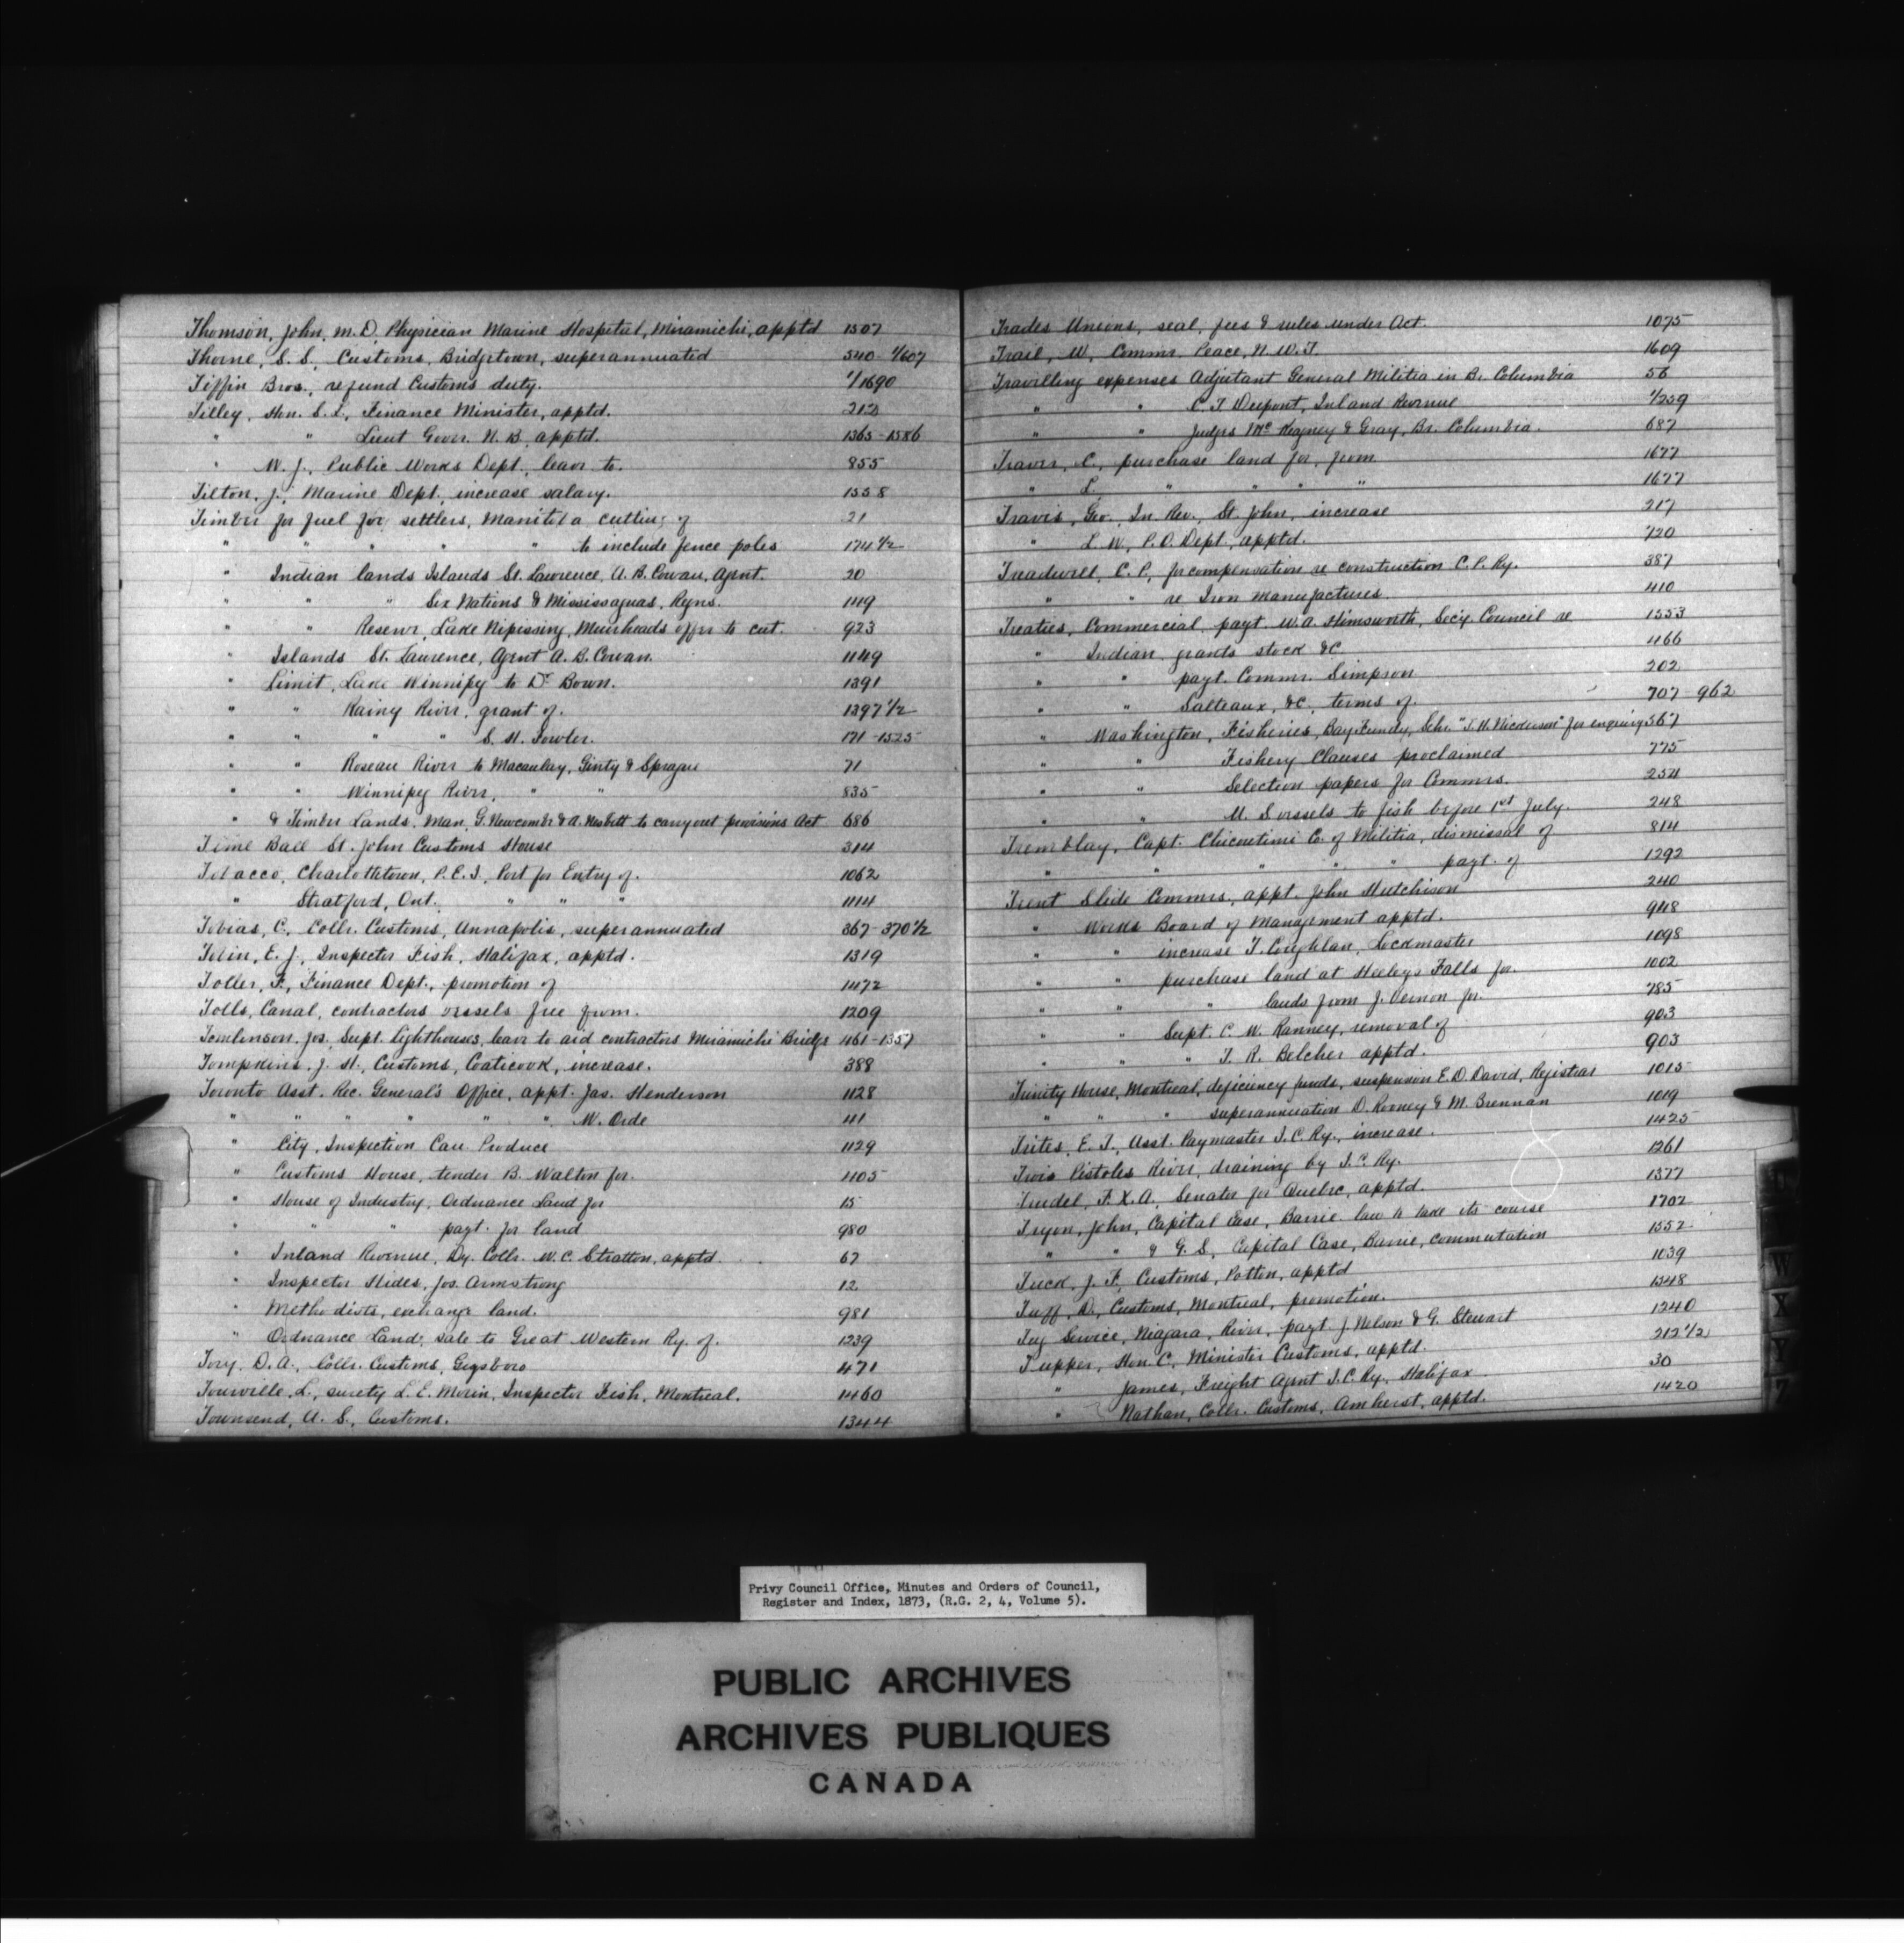 Thomson, John, M.D. Physician Marine Hospital, Miramichi, apptd 1507
Thorne, S. S., Customs, Bridgetown, superannuated 540- 1/607
Tiffin Bros., refund Customs duty. 1/1690
Tilley, Hon. S. L., Finance Minister, apptd. 213
" " Lieut Govr. N. B. apptd. 1365-1586
" W. J., Public Works Dept., leave to. 855
Tilton, J., Marine Dept. increase salary. 1558
Timber for fuel for settlers, Manitoba cutting of 21
" " " " " to include fence poles 174 1/2
" Indian lands Islands St. Lawrence, A. B. Cowan, Agent. 20
" " " Six Nations & Mississaguas, Regns. 1119
" " Reserve, Lake Nipissing, Muirheads offer to cut. 923
" Islands St. Lawrence, Agent A. B. Cowan. 1149
" Limit, Lake Winnipeg to Dr Bown. 1391
" " Rainy River, grant of. 1397 1/2
" " " " S. H. Fowler. 171-1525
" " Roseau River to Macaulay, Ginty & Sprague 71
" " Winnipeg River, " " 835
" & Timber Lands, Man. G. Newcombe & A. Nesbitt to carry out provisions Act 686
Time Ball St. John Customs House 314
Tobacco, Charlottetown, P.E.I., Port for Entry of. 1062
" Stratford, Ont. " " " 1114
Tobias, C., Collr. Customs, Annapolis, superannuated 367-370 1/2
Tobin, E. J., Inspector Fish, Halifax, apptd. 1319
Toller, F., Finance Dept., promotion of 1472
Tolls, Canal, contractors vessels free from. 1209
Tomlinson, Jos., Supt. Lighthouses, leave to aid contractors Miramichi Bridge 461-1357
Tompkins, J. H., Customs, Coaticook, increase. 388
Toronto Asst. Rec. General's Office, appt. Jas. Henderson 1128
" " " " " W. Orde 111
" City, Inspection Can Produce 1129
" Customs House, tender B. Walton for. 1105
" House of Industry, Ordnance Land for 15
" " " payt. for land 980
" Inland Revenue, Dy. Collr. W. C. Stratton, apptd. 67
" Inspector Hides, Jos. Armstrong 12
" Methodists, exchange land. 981
" Ordnance Land, sale to Great Western Ry. of. 1239
Tory, D. A., Collr. Customs, Guysboro 471
Tourville, L., surety L. E. Morin, Inspector Fish, Montreal. 1460
Townsend, A. S., Customs. 1344
Trades Unions, seal, fees & rules under Act. 1075
Trail, W., Commr. Peace, N. W. T. 1609
Travelling expenses Adjutant General Militia in B. Columbia 56
" " C. T. Dupont, Inland Revenue 1/259
" " Judges McCreagney & Gray, Br. Columbia. 687
Traver, C., purchase land for, from 1677
" L. " " " " 1677
Travis, Geo., In. Rev., St. John, increase 217
" L. W., P. O. Dept., apptd. 720
Treadwell, C. P., for compensation re construction C. P. Ry. 387
" " re Iron Manufactures. 410
Treaties, Commercial payt. W. A. Himsworth, Secy. Council re 1553
" Indian grants stock &c. 1166
" " payt. Commr. Simpson 202
" " Salteaux, &c., terms of. 707 962
" Washington, Fisheries, Bay Fundy, Schr. "J. H. Nickerson" for enquiry 567
" " Fishery Clauses proclaimed 775
" " Selection papers for Commrs. 254
" " U. S vessels to fish before 1st July. 248
Tremblay, Capt. Chicoutimi Co. of Militia, dismissal of 814
" " " " " payt. of 1292
Trent Slide Commrs, appt. John Hutchison 240
" Works Board of Management apptd. 948
" " increase T. Coughlan, Lockmaster 1098
" " purchase land at Heeley's Falls for. 1002
" " " lands from J. Vernon for. 785
" " Supt. C. W. Ranney, removal of 903
" " " T. R. Belcher apptd. 903
Trinity House, Montreal, deficiency funds, suspension E. D. David, Registrar 1015
" " " superannuation D. Rooney & M. Brennan 1019
Trites, E. T., Asst. Paymaster I. C. Ry., increase. 1425
Trois Pistoles River, draining by I. C. Ry. 1261
Trudel, F. X. A., Senator for Quebec, apptd. 1377
Tryon, John, Capital Case, Barrie law to take its course 1702
" " & G. S., Capital Case, Barrie, commutation 1552
Tuck, J. F. Customs, Potton, apptd 1039
Tuff, D., Customs, Montreal, promotion. 1348
Tug Service, Niagara River, payt. J. Nelson & G. Stewart 1240
Tupper, Hon. C., Minister Customs, apptd. 212 1/2
" James, Freight Agent I. C. Ry. Halifax 30
" Nathan, Collr. Customs, Amherst, apptd. 1420
W
X
Y
Z
Privy Council Office, Minutes and Orders of Council,
Register and Index, 1873, (R.G. 2, 4, Volume 5).
PUBLIC ARCHIVES
ARCHIVES PUBLIQUES
CANADA